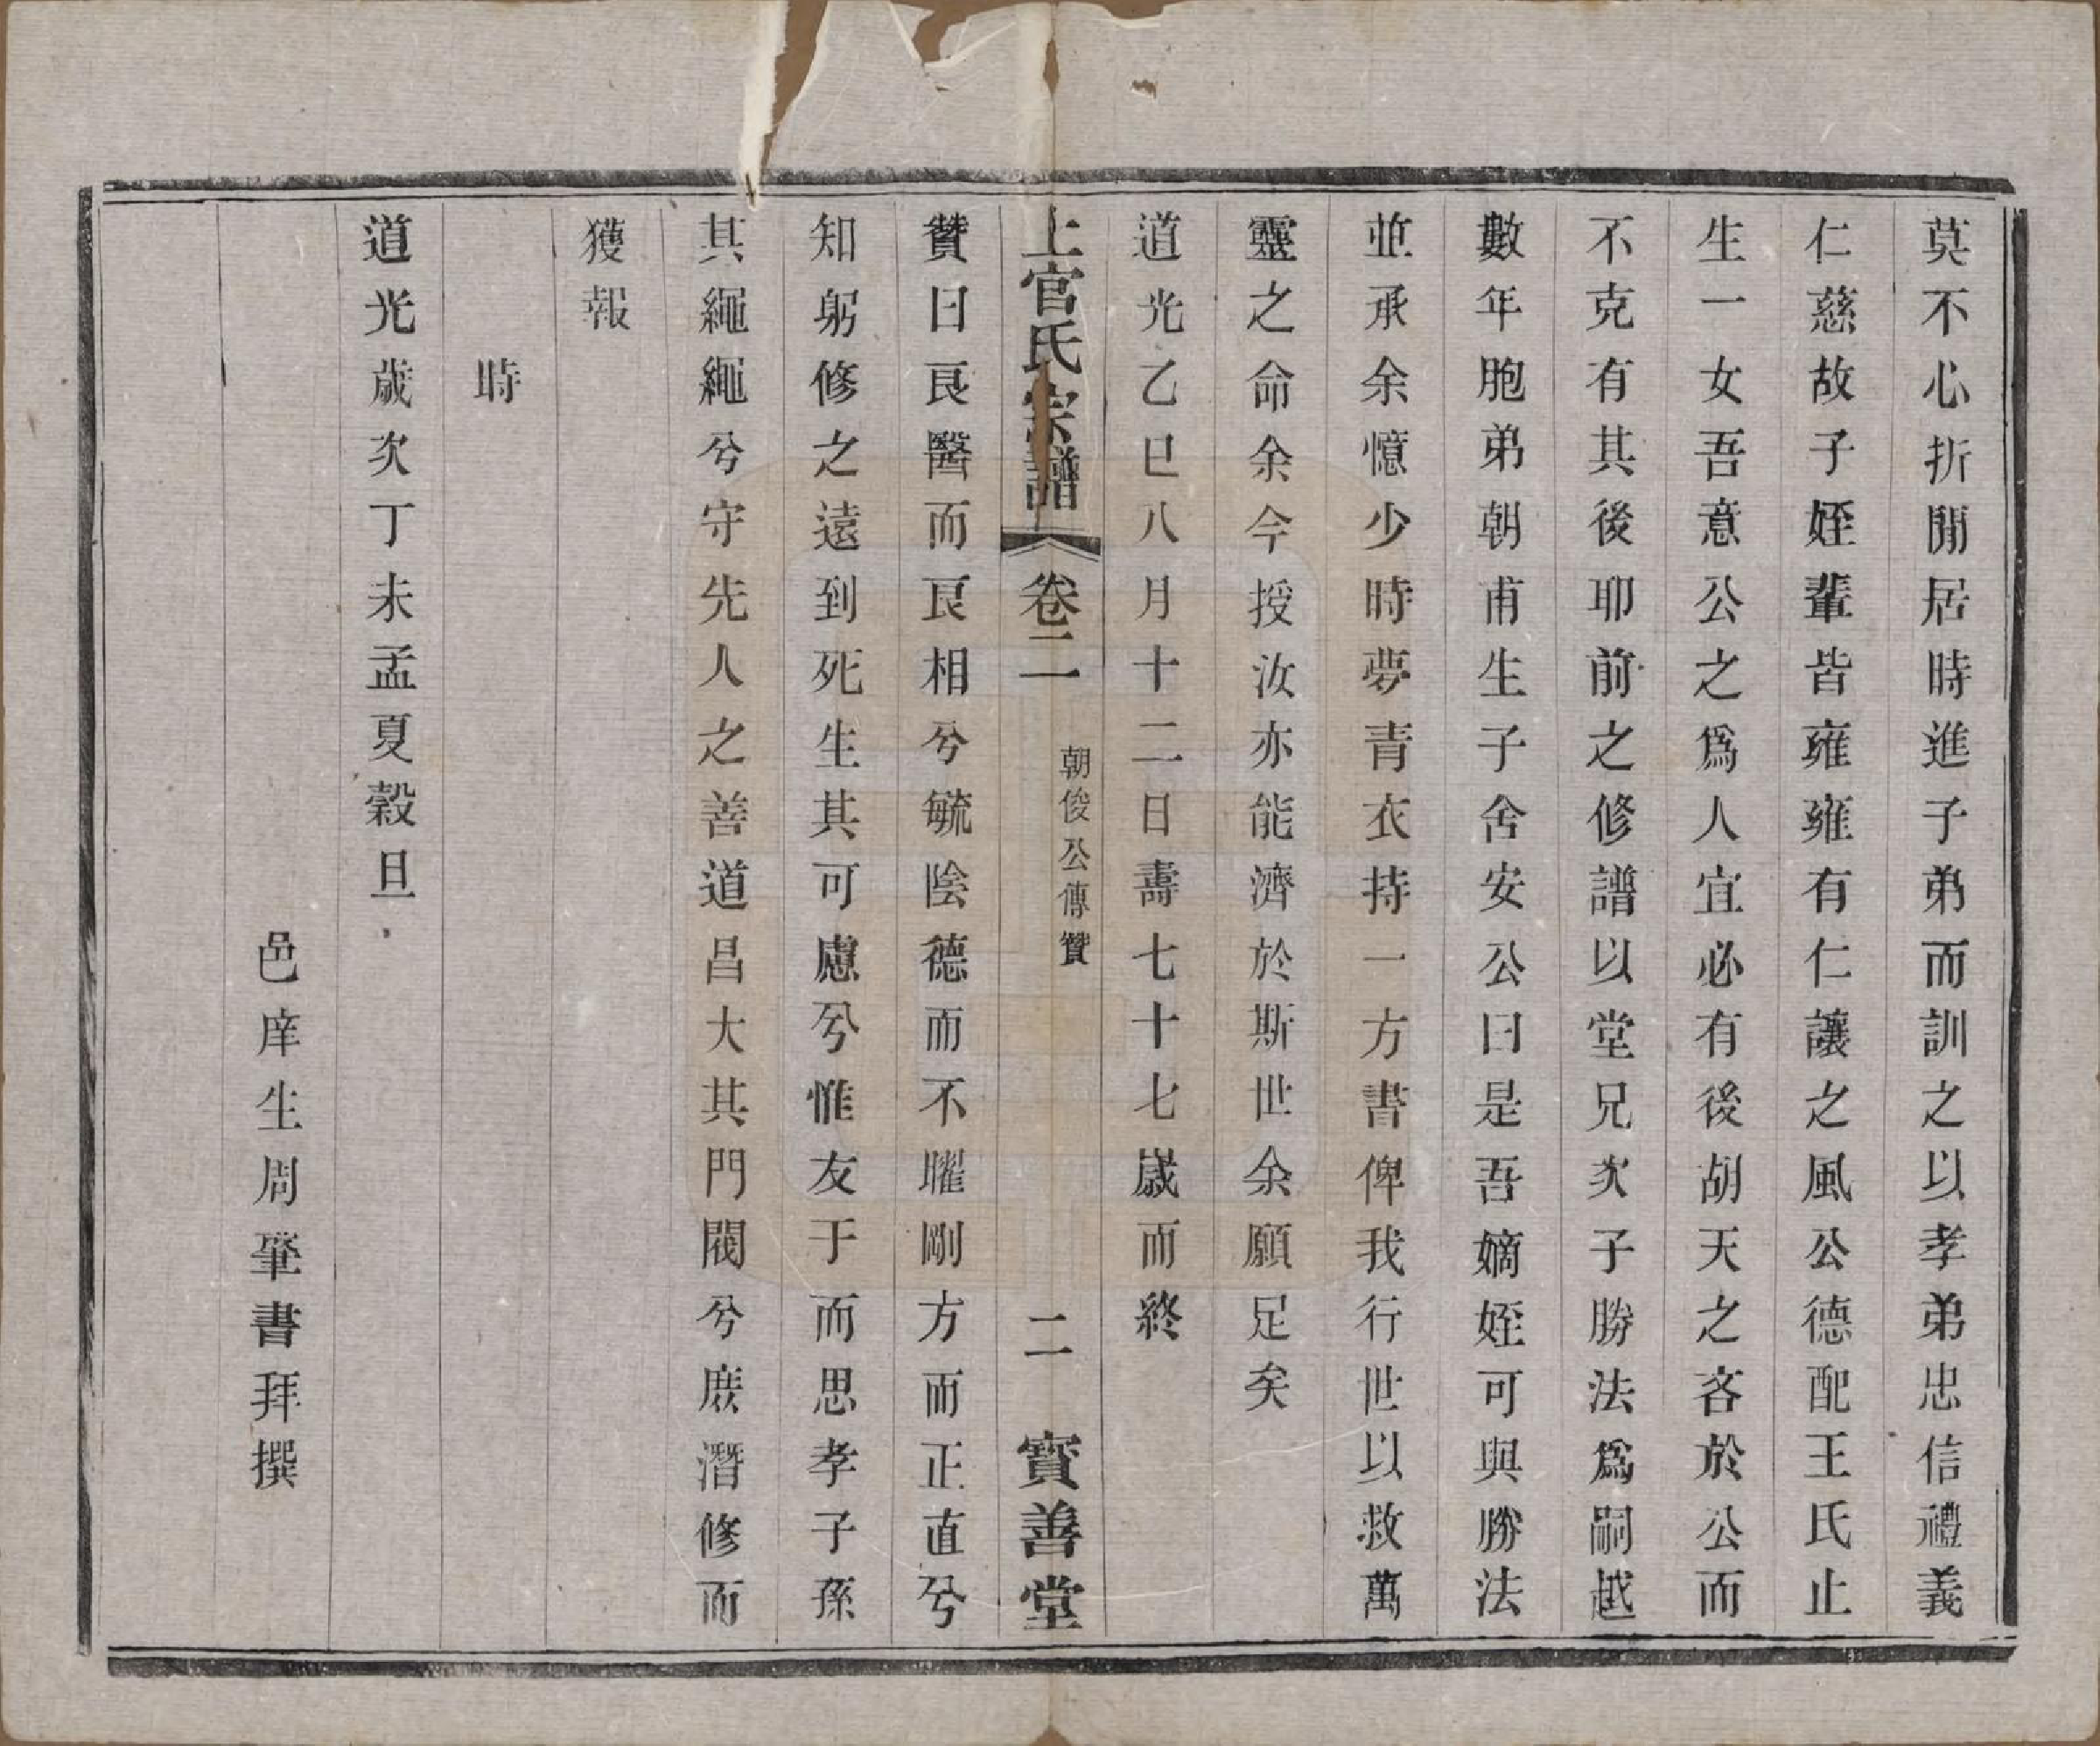 莫不心折閒居時進子弟而訓之以孝弟忠信禮義
仁慈故子姪輩皆雍雍有仁讓之風公德配王氏止
生一女吾意公之爲人宜必有後胡天之吝於公而
不克有其後耶前之修譜以堂兄次子勝法爲嗣越
數年胞弟朝甫生子舍安公曰是吾嫡姪可與勝法
並承余憶少時夢青衣持一方書俾我行世以救萬
靈之命余今授汝亦能濟於斯世余願足矣
道光乙巳八月十二日壽七十七歲而終
上官氏宗譜 卷二 朝俊公傳贊 二 寶善堂
贊曰良醫而良相兮毓陰德而不矅剛方而正直兮
知躬修之遠到死生其可慮兮惟友于而思孝子孫
其繩繩兮守先人之善道昌大其門閥兮庶潛修而
獲報
時
道光歲次丁未孟夏穀旦
邑庠生周肇書拜撰